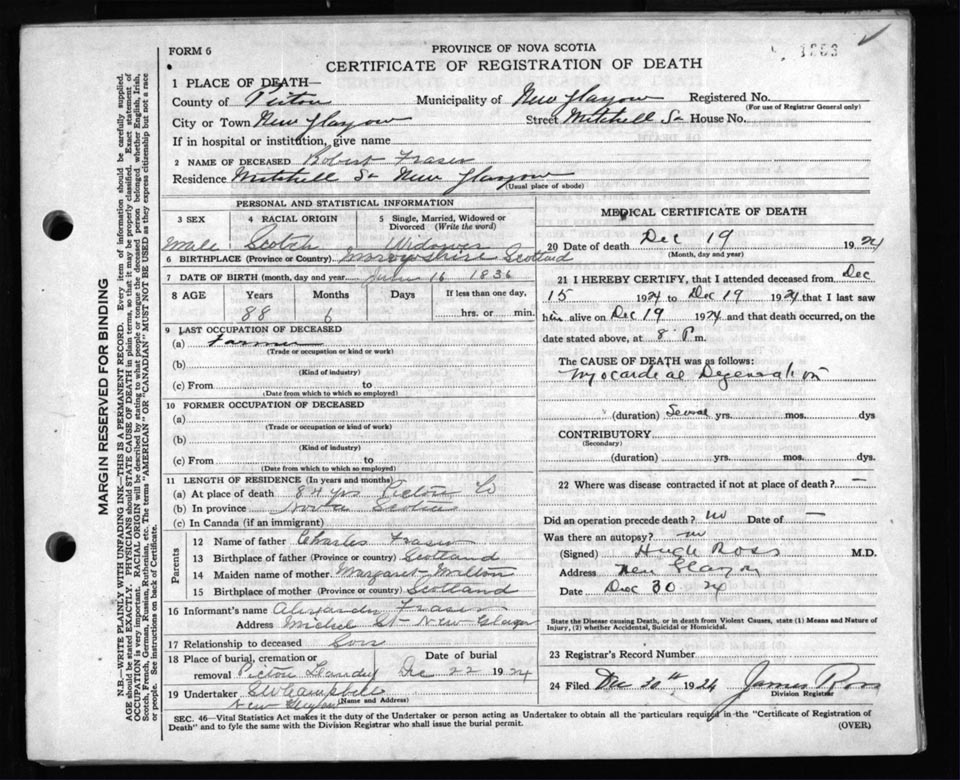 FORM 6
PROVINCE OF NOVA SCOTIA
1253
CERTIFICATE OF REGISTRATION OF DEATH
1 PLACE OF DEATH—
County of Pictou Municipality of New Glasgow Registered No.
(For use of Registrar General only)
City or Town New Glasgow Street Mitchell St House No.
If in hospital or institution, give name
2 NAME OF DECEASED Robert Fraser
Residence Mitchell St New Glasgow
(Usual place of abode)
PERSONAL AND STATISTICAL INFORMATION
3 SEX 4 RACIAL ORIGIN 5 Single, Married, Widowed or Divorced (Write the word)
Male Scotch Widower
6 BIRTHPLACE (Province or Country) Scotland
7 DATE OF BIRTH (month, day and year) June 16 1836
8 AGE Years Months Days If less than one day,
88 6 hrs. or min.
9 LAST OCCUPATION OF DECEASED
(a) Farmer
(Trade or occupation or kind or work)
(b)
(Kind of industry)
(c) From to
(Date from which to which so employed)
10 FORMER OCCUPATION OF DECEASED
(a)
(Trade or occupation or kind of work)
(b)
(Kind of industry)
(c) From to
(Date from which to which so employed)
11 LENGTH OF RESIDENCE (In years and months)
(a) At place of death 84 yrs Pictou Co
(b) In province Scotia
(c) In Canada (if an immigrant)
Parents
12 Name of father Charles Fraser
13 Birthplace of father (Province or country) Scotland
14 Maiden name of mother Margaret Milton
15 Birthplace of mother (Province or country) Scotland
16 Informant's name Alexander Fraser
Address St New Glasgow
17 Relationship to deceased Son
18 Place of burial, cremation or removal Pictou Landing Date of burial Dec 22 1924
19 Undertaker Campbell
New Glasgow
(Name and Address)
MEDICAL CERTIFICATE OF DEATH
20 Date of death Dec 19 1924
(Month, day and year)
21 I HEREBY CERTIFY, that I attended deceased from Dec
15 1924 to Dec 19 1924 that I last saw
him alive on Dec 19 1924 and that death occurred, on
date stated above, at 8 P m.
The CAUSE OF DEATH was as follows:
Myocardial Degeneration
(duration) Several yrs. mos. dys
CONTRIBUTORY
(Secondary)
(duration) yrs. mos. dys.
22 Where was disease contracted if not at place of death? —
Did an operation precede death? no Date of —
Was there an autopsy? no
(Signed) Hugh Ross M.D.
Address New Glasgow
Date Dec 30 24
State the Disease causing Death, or in death from Violent Causes, state (1) Means and Nature of
Injury, (2) whether Accidental, Suicidal or Homicidal.
23 Registrar's Record Number
24 Filed Dec 30th, 1924 James Ross
Division Registrar
SEC. 46—Vital Statistics Act makes it the duty of the Undertaker or person acting as Undertaker to obtain all the particulars required in the "Certificate of Registration of
Death" and to fyle the same with the Division Registrar who shall issue the burial permit.
(OVER)
MARGIN RESERVED FOR BINDING
N.B.—WRITE PLAINLY WITH UNFADING INK—THIS IS A PERMANENT RECORD. Every item of information should be carefully supplied.
AGE should be stated EXACTLY. PHYSICIANS should STATE CAUSE OF DEATH in plain terms, so that it may be properly classified. Exact statement of
OCCUPATION is very important. RACIAL ORIGIN will be described by stating to what people or tongue the deceased person belonged, whether English, Irish,
Scotch, French, German, Russian, Ruthenian, etc. The terms "AMERICAN" OR "CANADIAN" MUST NOT BE USED as they express citizenship but not a race
or people. See instructions on back of Certificate.